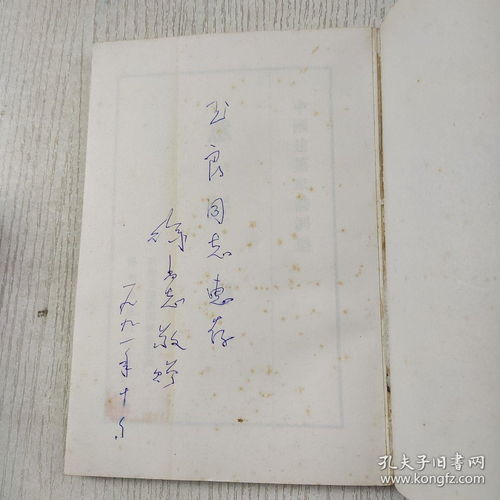 玉良同志惠存
徐尚志敬赠
一九九一年十月
孔夫子旧书网
www.kongfz.com